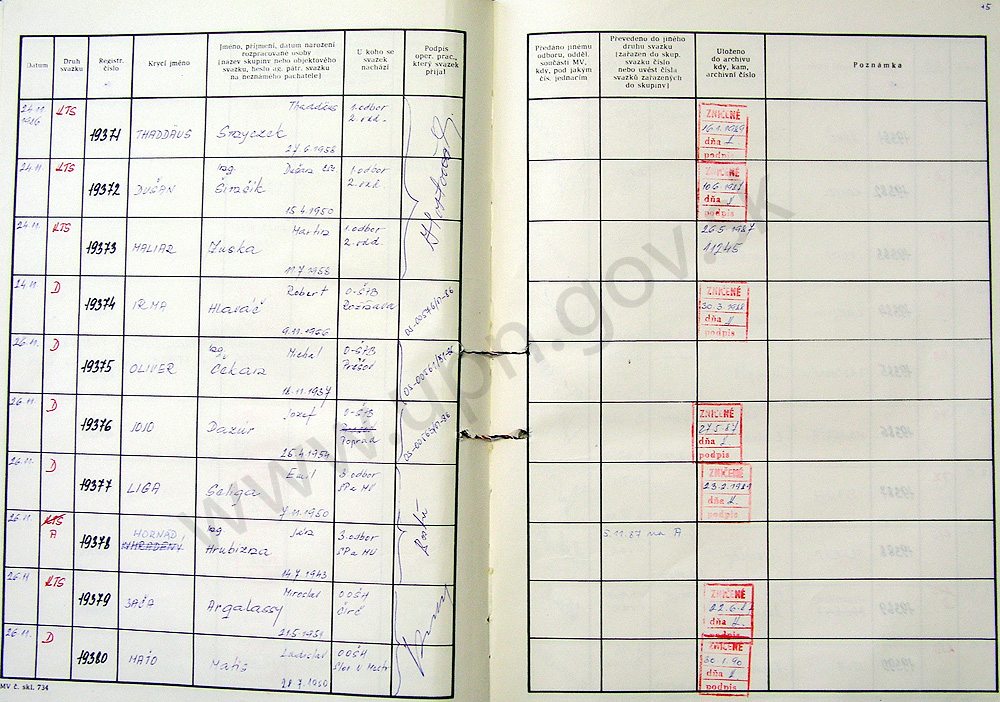 15
Datum
Druh svazku
Registr. číslo
Krycí jméno
Jméno, příjmení, datum narození rozpracované osoby
[název skupiny nebo objektového svazku, heslo ag. pátr. svazku na neznámého pachatele]
U koho se svazek nachází
Podpis oper. prac., který svazek přijal
Předáno jinému odboru, odděl. součásti MV, kdy, pod jakým čís. jednacím
Převedeno do jiného druhu svazku [zařazen do skup. svazku číslo nebo uvést čísla svazků zařazených do skupiny]
Uloženo do archivu kdy, kam, archivní číslo
Poznámka
24.11. 1986 KTS 19371 THADDÄUS Thaddäus 1. odbor
2. odd.
27.6.1958
ZNIČENÉ
16.1.1989
dňa
podpis
24.11. KTS 19372 DUŠAN Ing. Dušan 1. odbor
Širačik 2. odd
15.4.1950
ZNIČENÉ
dňa
podpis
24.11. KTS 19373 MALIAR Martin 1. odbor
Zuska 2. odd.
11.7.1958
26.5.1987
11245
24.11. D 19374 IRMA Robert O-ŠTB
Hlaváč Rožňava
9.11.1956
ZNIČENÉ
30.3.1988
dňa
podpis
26.11. D 19375 OLIVER Ing. Michal O-ŠTB
Čekan Prešov
18.11.1937
26.11. D 19376 JOJO Jozef O-ŠTB
Dazúr Poprad
26.4.1954
ZNIČENÉ
27.5.87
dňa
podpis
26.11. D 19377 LIGA Emil 3. odbor
Seliga SPZ MV
7.11.1950
ZNIČENÉ
dňa
podpis
26.11. KTS A 19378 HORNÁD Ing. Ján 3. odbor
Hrubizna SPZ MV
14.7.1943
5.11.87 na A
26.11 KTS 19379 ZAŤA Miroslav OOŠH
Argalassy Čirč
21.5.1951
ZNIČENÉ
dňa
podpis
26.11. D 19380 MAŤO Ladislav OOŠH
Matis
28.7.1950
ZNIČENÉ
30.1.90
dňa
podpis
MV č. skl. 734
www.upn.gov.sk